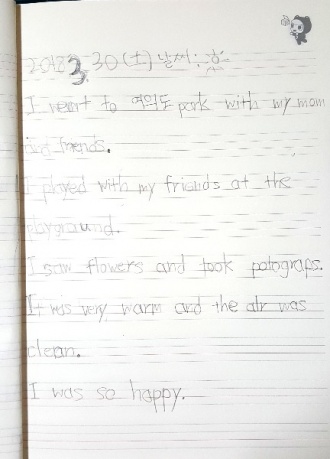 2018 3. 30 (土) 날씨 : 흐
I went to 여의도 park with my mom
and friends.
I played with my friends at the
playground.
I saw flowers and took potograps.
It was very warm and the air was
clean.
I was so happy.